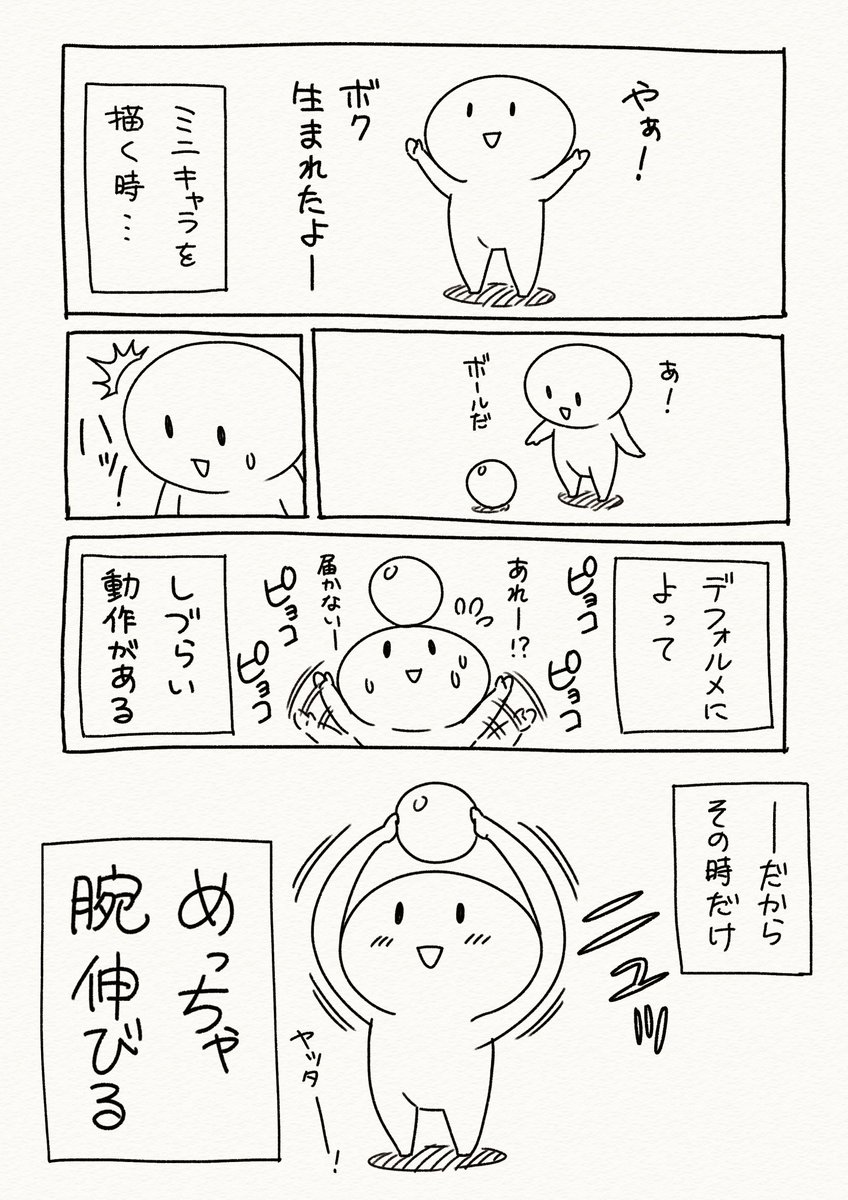 やぁ!
ボク
生まれたよー
ミニキャラを
描く時…
あ!
ボールだ
ハッ!
デフォルメに
よって
ピョコ
ピョコ
あれー!?
届かないー
ピョコ
ピョコ
しづらい
動作がある
ーだから
その時だけ
ニュッ
ヤッター!
めっちゃ
腕伸びる